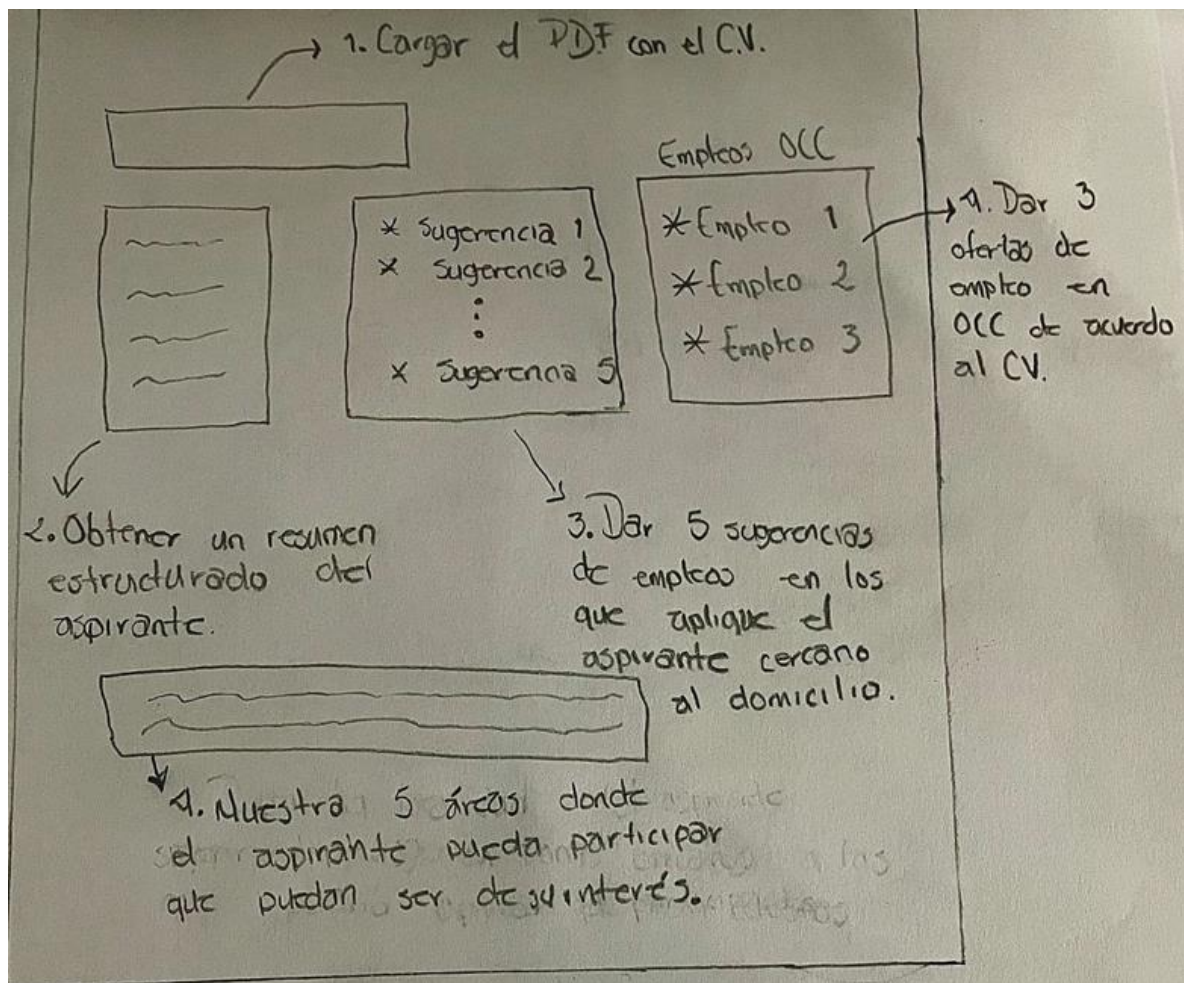 1. Cargar el PDF con el C.V.
Empleos OCC
* Sugerencia 1
* Sugerencia 2
* Sugerencia 5
* Empleo 1
* Empleo 2
* Empleo 3
4. Dar 3
ofertas de
empleo en
OCC de acuerdo
al CV.
2. Obtener un resumen
estructurado del
aspirante.
3. Dar 5 sugerencias
de empleos en los
que aplique el
aspirante cercano
al domicilio.
4. Muestra 5 áreas donde
el aspirante pueda participar
que puedan ser de su interés.